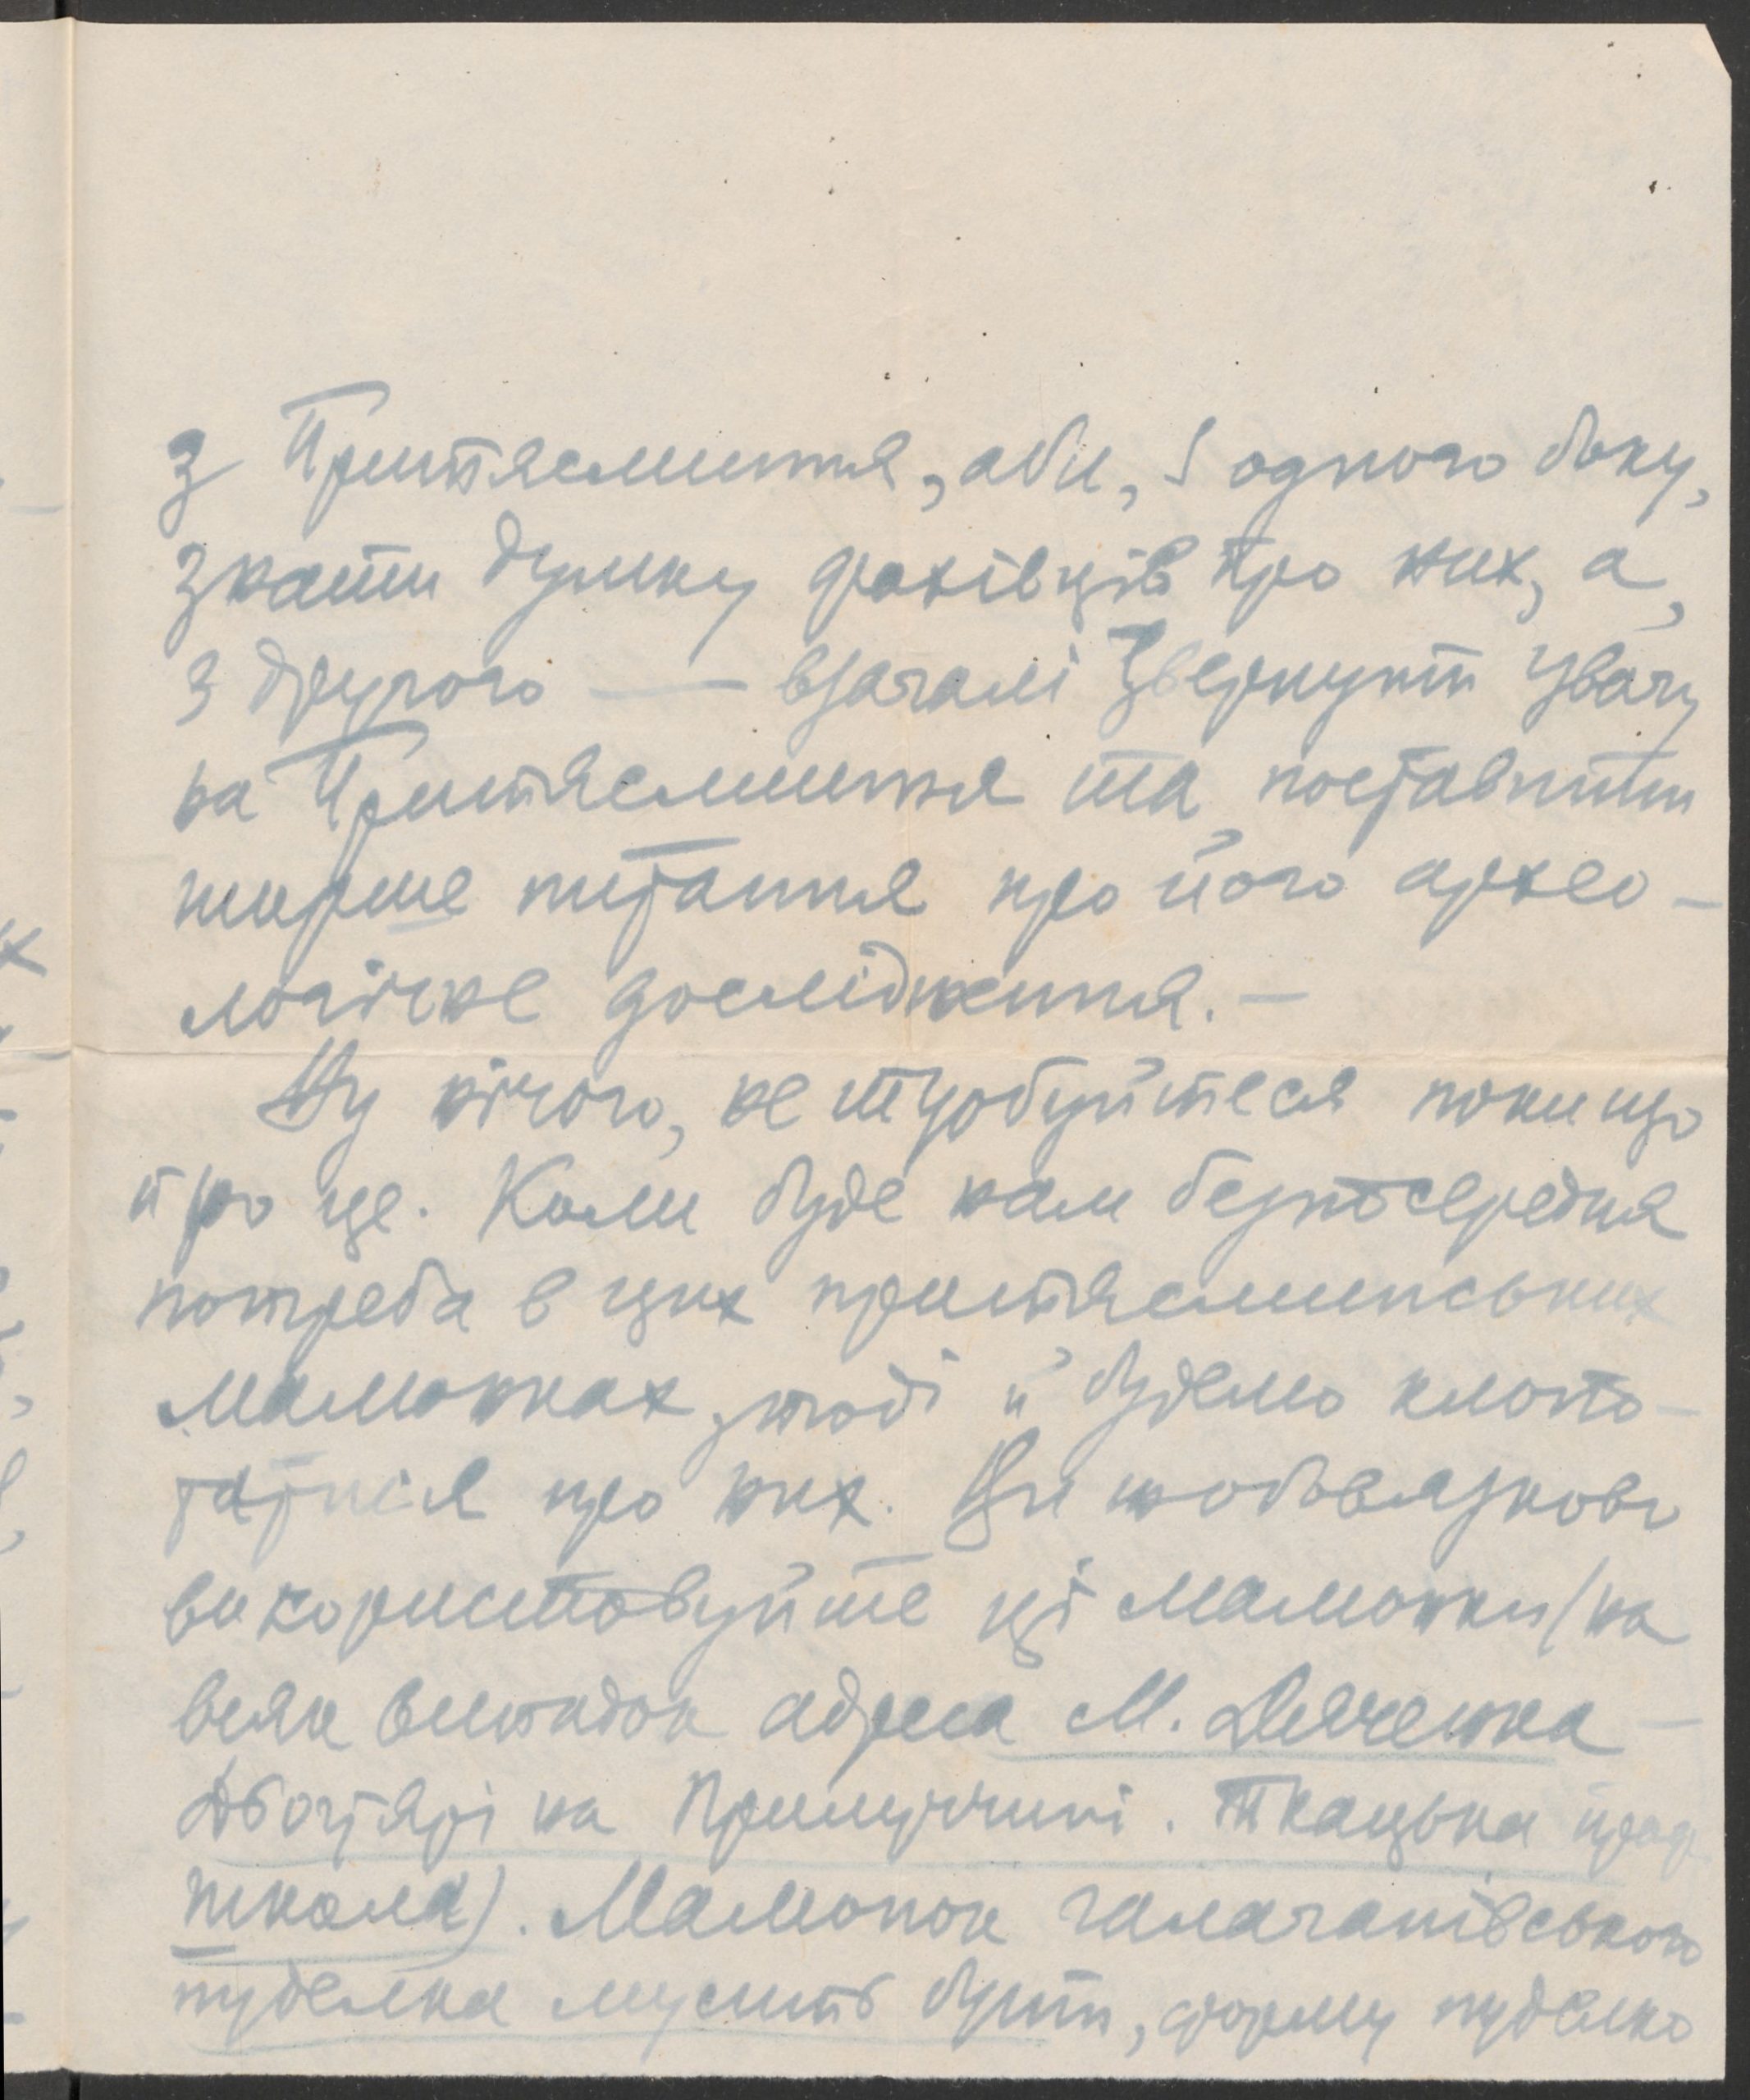 з Притясмиття, аби, з одного боку,
знати думку фахівців про них, а,
з другого — взагалі звернути увагу
на Притясмиття та поставити
ширше питання про його архео-
логічне дослідження. —
Ну нічого, не турбуйтеся поки що
про це. Коли буде нам безпосередня
потреба в цих притясминських
малюнках, тоді й будемо клопо-
татися про них. Ви обовязково
використовуйте ці малюнки (на
всяк випадок адреса М. Дяченка —
Дігтярі на Прилуччині. Ткацька проф
школа). Малюнок галаганівського
пуделка мусить бути, форму пуделко